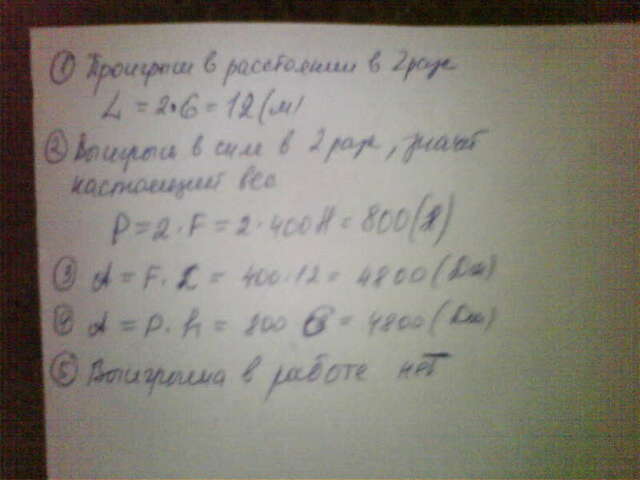 ① Проигрыш в расстоянии в 2 раза
L = 2·6 = 12 (м)
② Выигрыш в силе в 2 раза, значит
настоящий вес
P = 2·F = 2·400Н = 800 (Н)
③ A = F·L = 400·12 = 4800 (Дж)
④ A = P·h = 800 6 = 4800 (Дж)
⑤ Выигрыша в работе нет